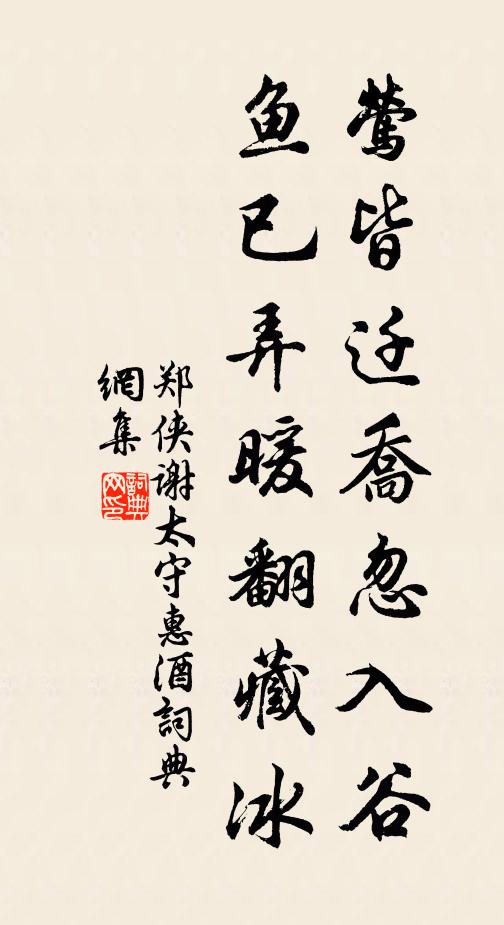 莺皆迁乔忽入谷
鱼已弄暖翻藏冰
郑侠谢太守惠酒詞典
網集
詞典
网印